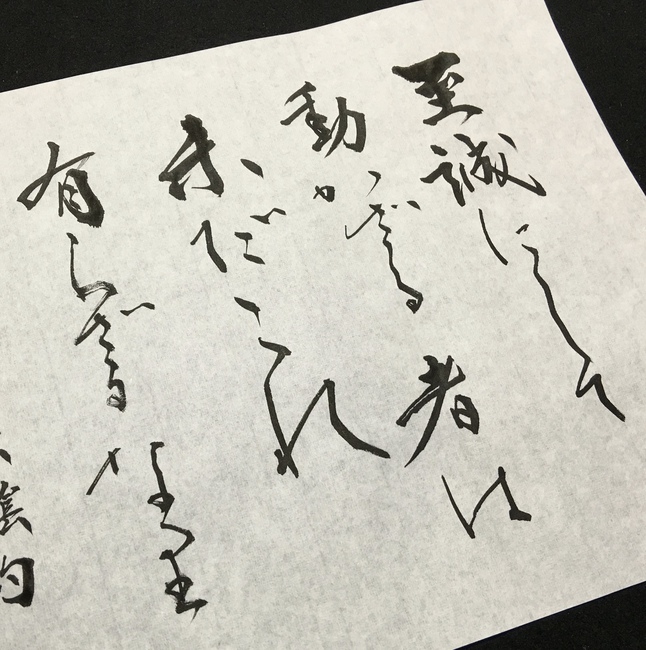 至誠にして
動かざる者は
未だこれ
有らざる